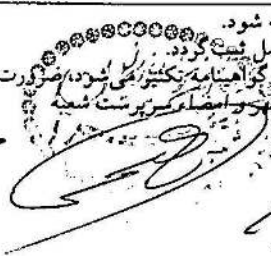 شود.
ثبت گردد.
گواهینامه تکثیر می‌شود، ضرورت
و امضاء سرپرست شعبه